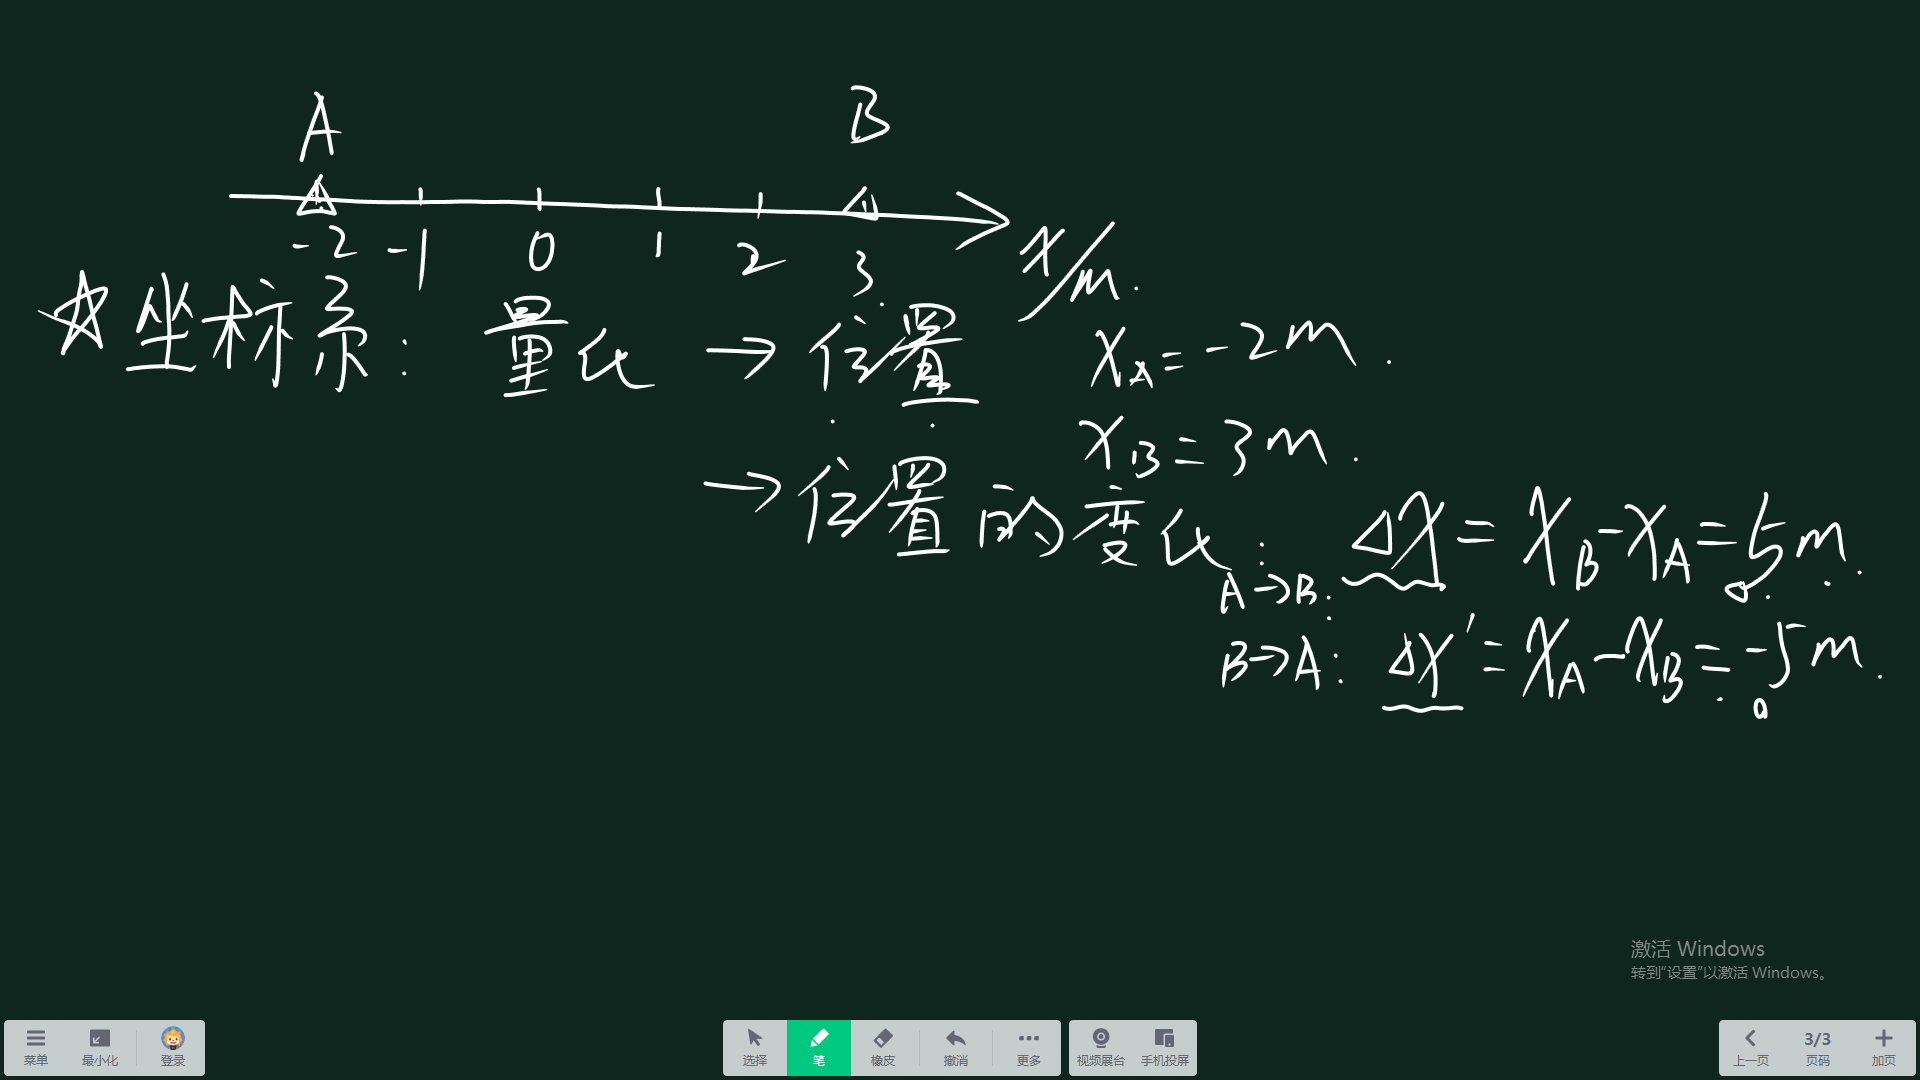 A B
-2 -1 0 1 2 3 x/m.
☆坐标系: 量化 → 位置 xA = -2m.
xB = 3m.
→ 位置的变化: Δx = xB - xA = 5m.
A→B:
B→A: Δx' = xA - xB = -5m.
激活 Windows
转到“设置”以激活 Windows。
菜单 最小化 登录 选择 笔 橡皮 撤消 更多 视频展台 手机投屏 上一页 3/3 页码 加页